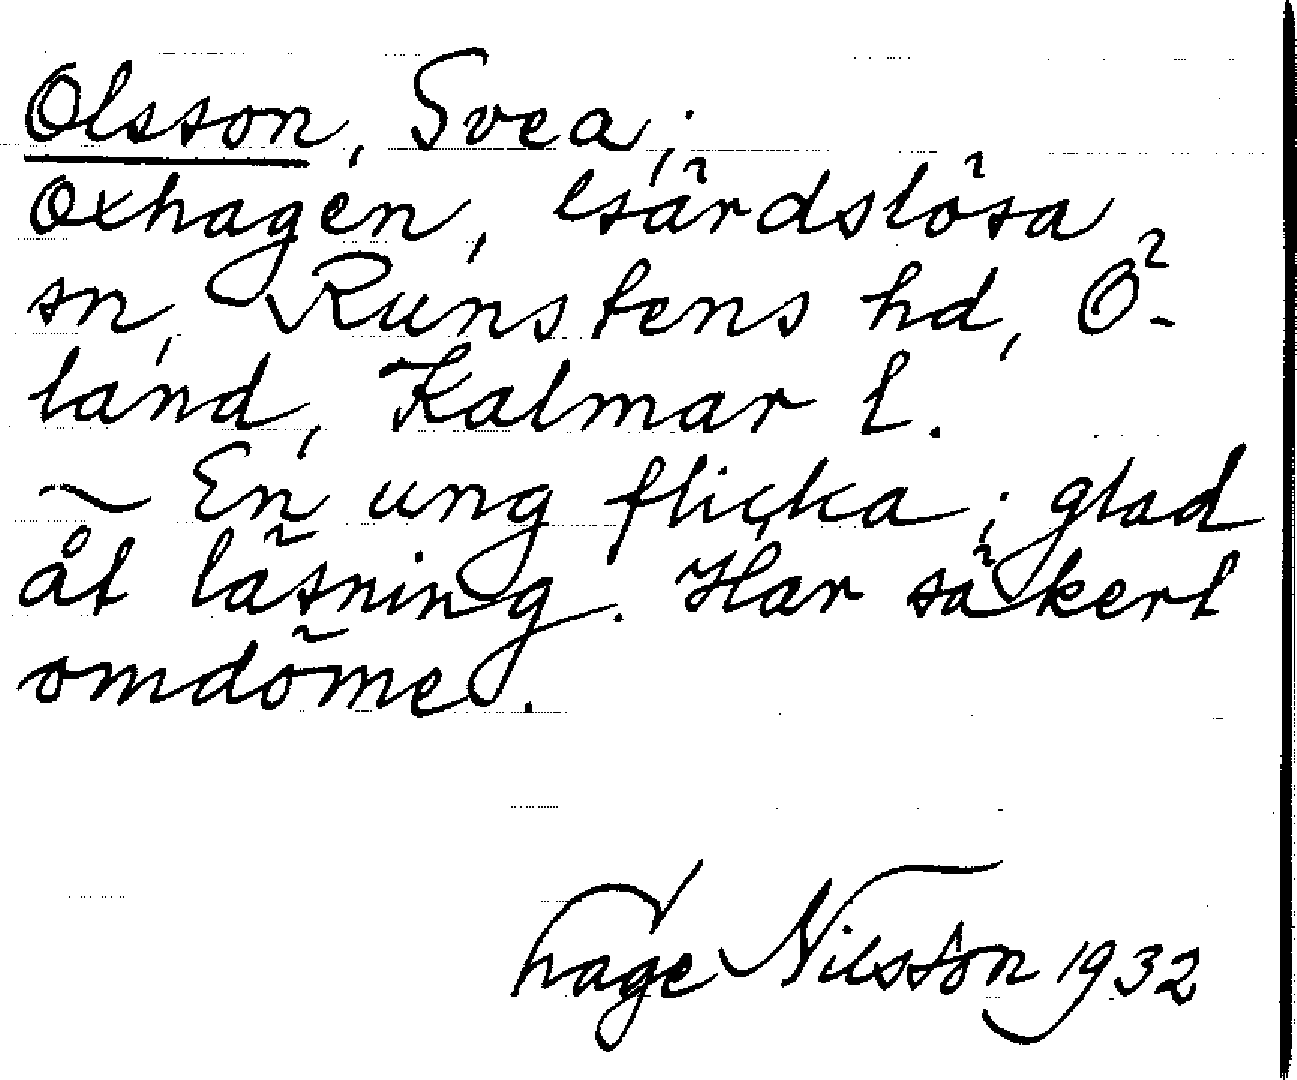 Olsson, Svea;
Oxhagen, Gärdslösa
sn, Runstens hd, Ö-
land, Kalmar l.
~ En ung flicka; glad
åt läsning. Har säkert
omdöme.
Hage Nilsson 1932